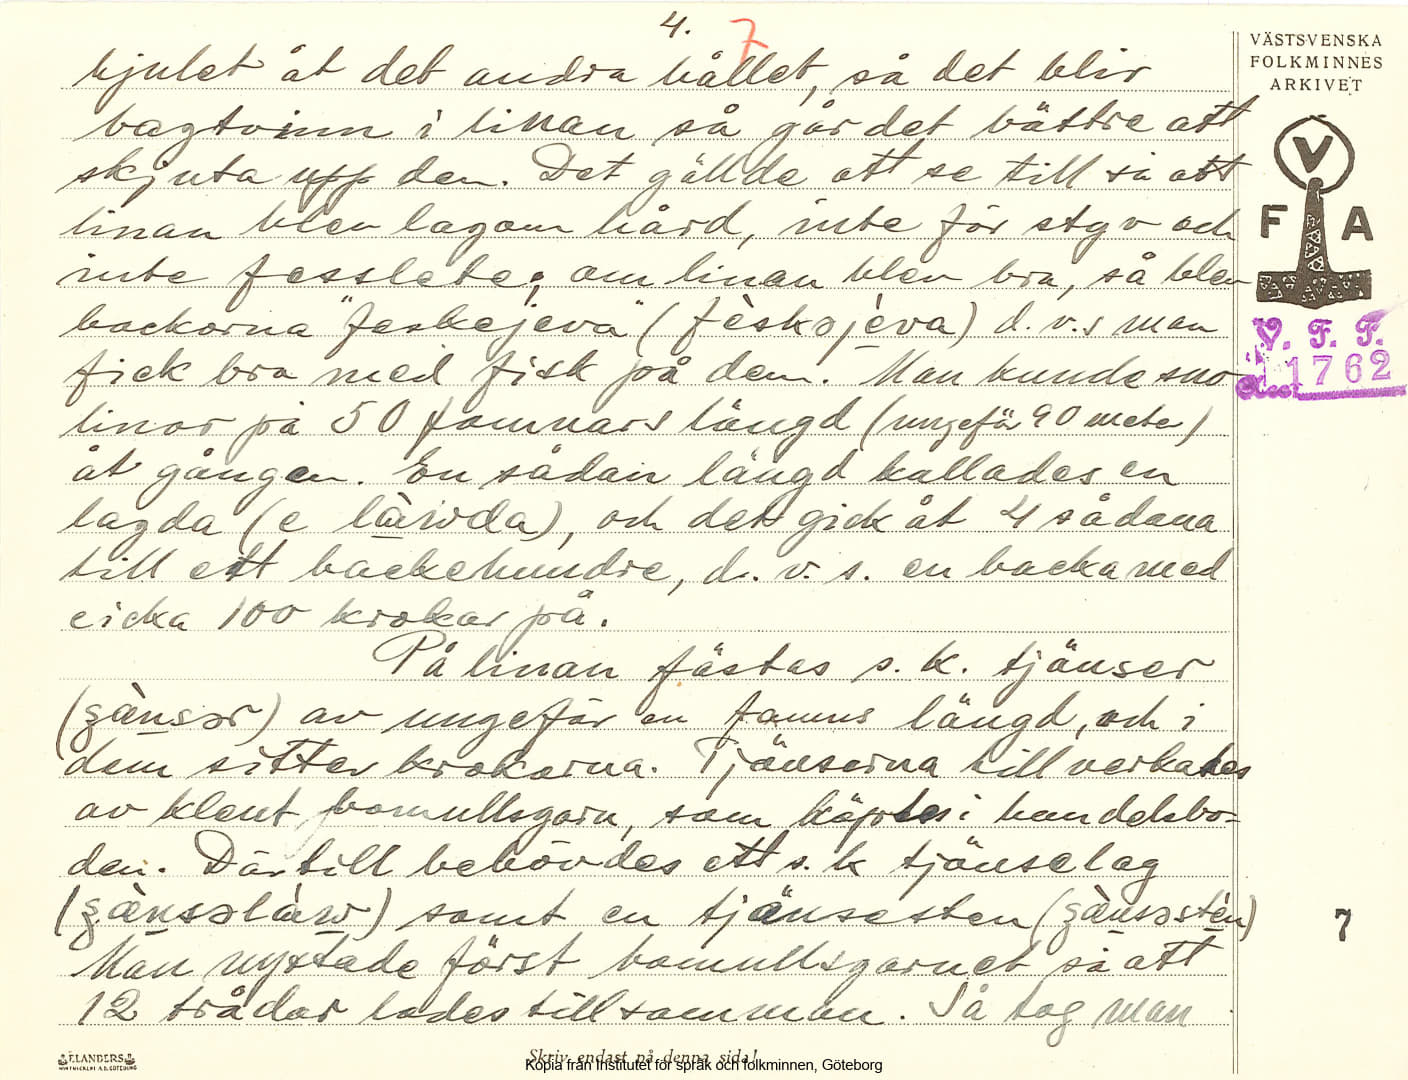 4.
7
hjulet åt det andra hållet, så det blir
bagtvinn i linan så går det bättre att
skjuta upp den. Det gällde att se till så att
linan blev lagom hård, inte för styv och
inte fesslete; om linan blev bra, så blev
backorna "feskejeva" (fèskəjéva) d.v.s man
fick bra med fisk på dem. Man kunde sno
linor på 50 famnars längd (ungefär 90 meter)
åt gången. En sådan längd kallades en
lagda (e làwda), och det gick åt 4 sådana
till ett backehundre, d. v. s. en backa med
cicka 100 krokar på.
På linan fästas s. k. tjänser
av ungefär en famns längd, och i
dem sitter krokarna. Tjänserna tillverkades
av klent bomullsgarn, som köptes i handelsbo-
den. Därtill behövdes ett s. k tjänselag
samt en tjänsesten
Man nystade först bomullsgarnet så att
12 trådar lades tillsamman. Så tog man
VÄSTSVENSKA
FOLKMINNES
ARKIVET
V
F A
V. F. F.
1762
7
F.LANDERS
Skriv endast på denna sida!
Kopia från Institutet för språk och folkminnen, Göteborg